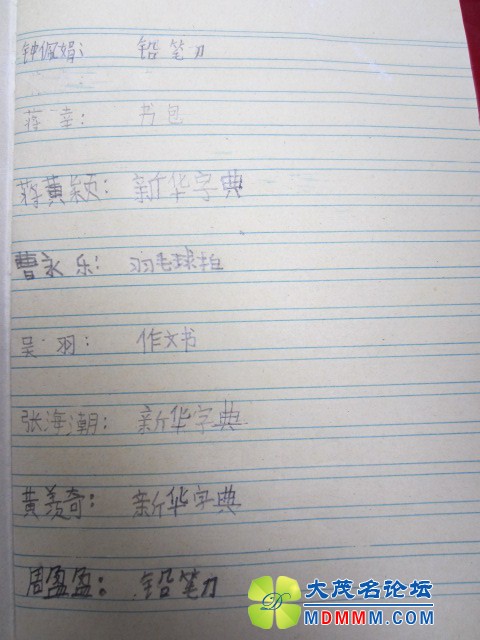 钟佩娟： 铅笔刀
蒋幸： 书包
蒋黄颖： 新华字典
曹永乐： 羽毛球拍
吴羽： 作文书
张海潮： 新华字典
黄羡奇： 新华字典
周盈盈： 铅笔刀
大茂名论坛
MDMMM.COM